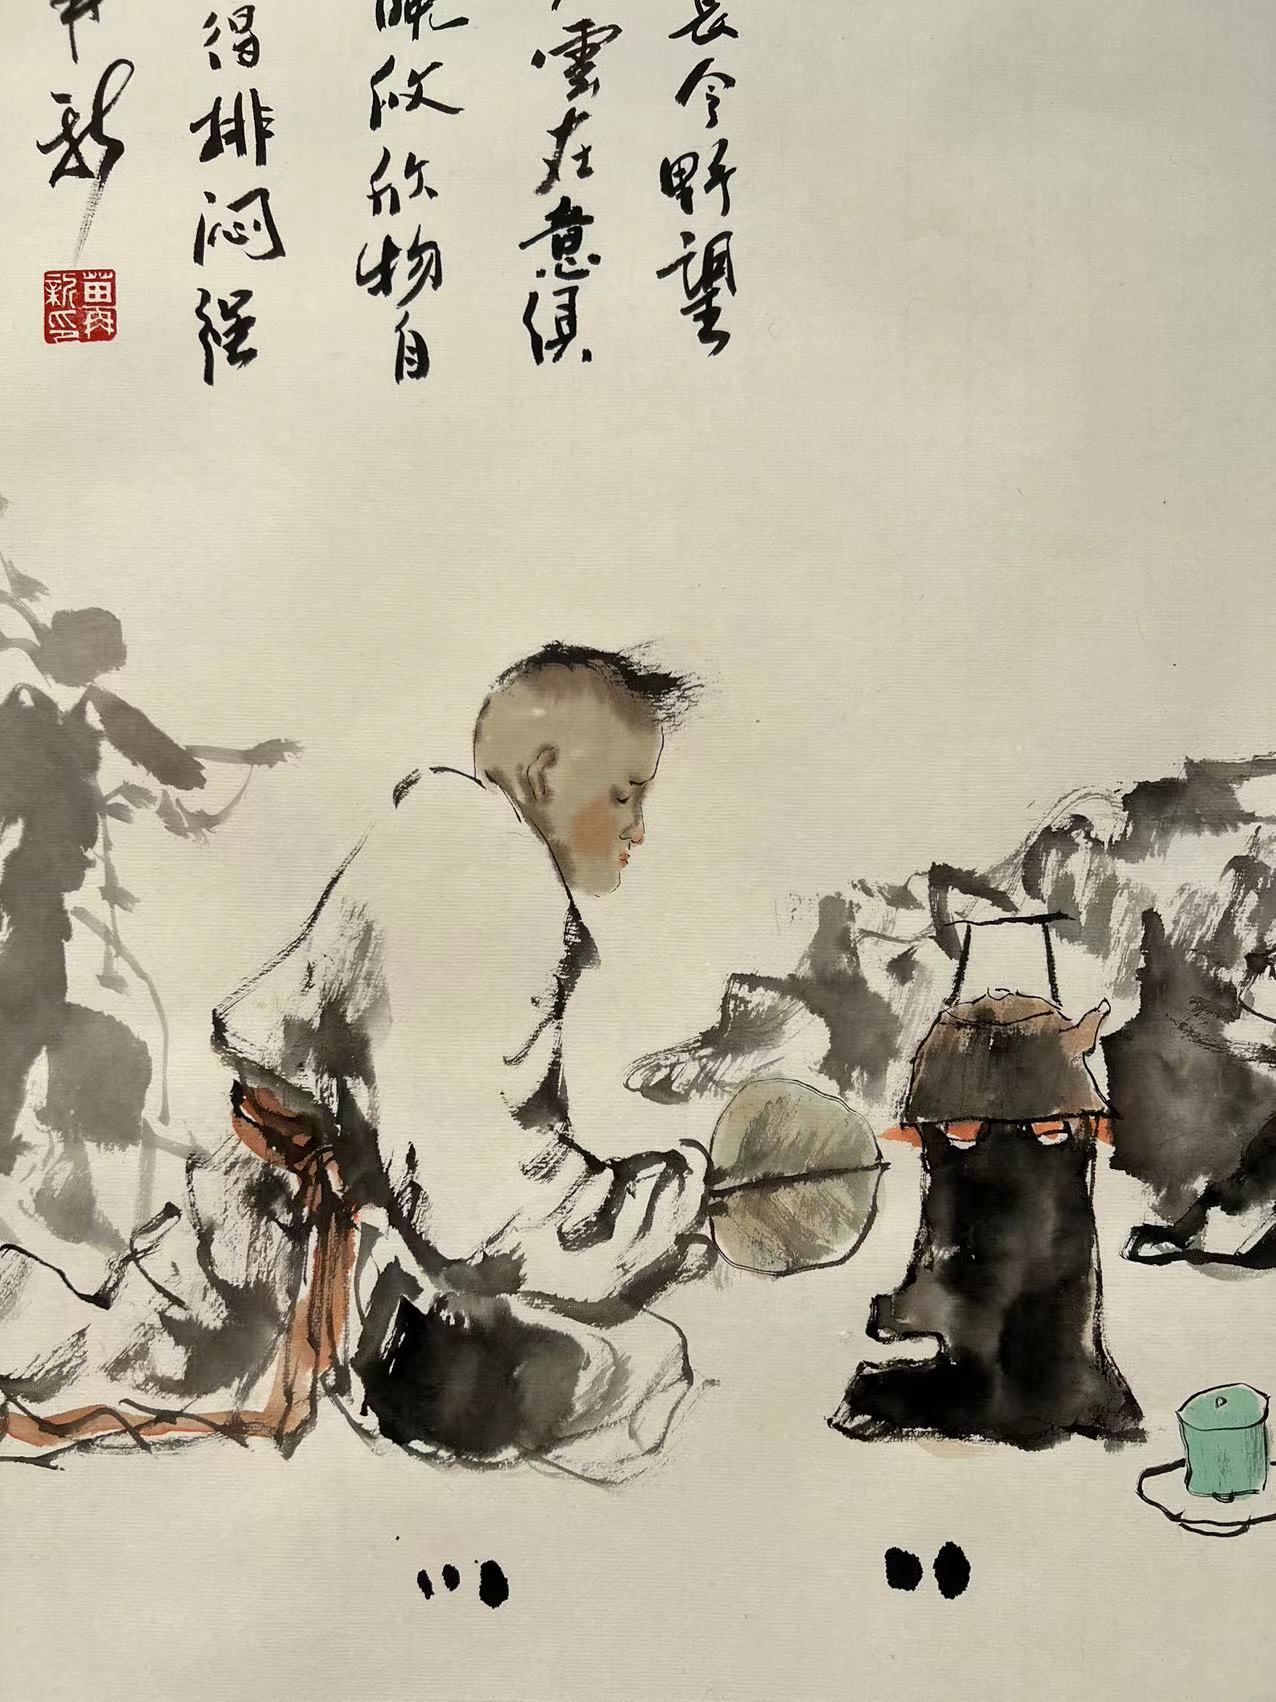 長令野望
雲在意俱
晚欣欣物自
得排闷强
新
苗再新印